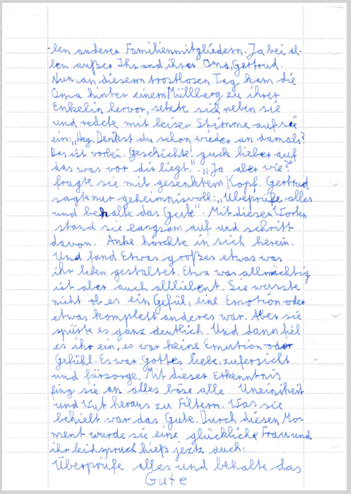 -len anderen Familienmitgliedern. Ja bei al-
len außer Ihr und ihrer Oma, Gertrud.
Nun an diesem trostlosen Tag, kam die
Oma hinter einem Müllberg zu ihrer
Enkelin hervor, setzte sich neben sie
und redete mit leiser Stimme auf sie
ein: „Hey, Denkst du schon wieder an damals?
Das ist vorbei. Geschichte! guck lieber auf
das was vor dir liegt." „Ja aber wie?"
fragte sie mit gesenktem Kopf. Gertrud
sagte nur geheimnisvoll: „Überprüfe alles
und behalte das Gute". Mit diesen Worten
stand sie langsam auf und schritt
davon. Anke horchte in sich herein.
Und fand Etwas großes etwas was
ihr leben gestaltet. Etwa was allmächtig
ist aber auch allliebent. Sie wusste
nicht ob es ein Gefül, eine Emotion oder
etwas komplett anderes war. Aber sie
spürte es ganz deutlich. Und dann fiel
es ihr ein, es war keine Emution oder
Gefühl. Es war Gottes liebe, zufersicht
und fürsorge. Mit dieser Erkenntnis
fing sie an alles böse alle Uneiniheit
und Wut heraus zu Filtern. Was sie
behielt war das Gute. Durch diesen Mo-
ment wurde sie eine glückliche Frau und
ihr leidspruch hieß jetz auch:
Überprüfe alles und behalte das
Gute